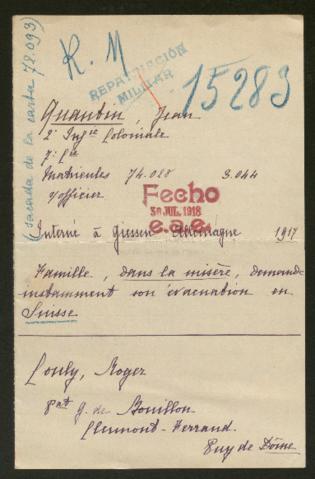 R. M
REPATRIACIÓN
MILITAR
15283
(sacada de la carta 78.093)
Quantin, Jean
2e Infrie Coloniale
7: Cie
Matricules 74.028 3.044
s/officier
Fecho
30 JUL. 1918
e.a.e.
Interné à Giessen Allemagne 1917
Famille, dans la misère, demande
instamment son évacuation en
Suisse
Couly, Roger
G. de Bouillon
Clermont-Ferrand
Puy de Dôme